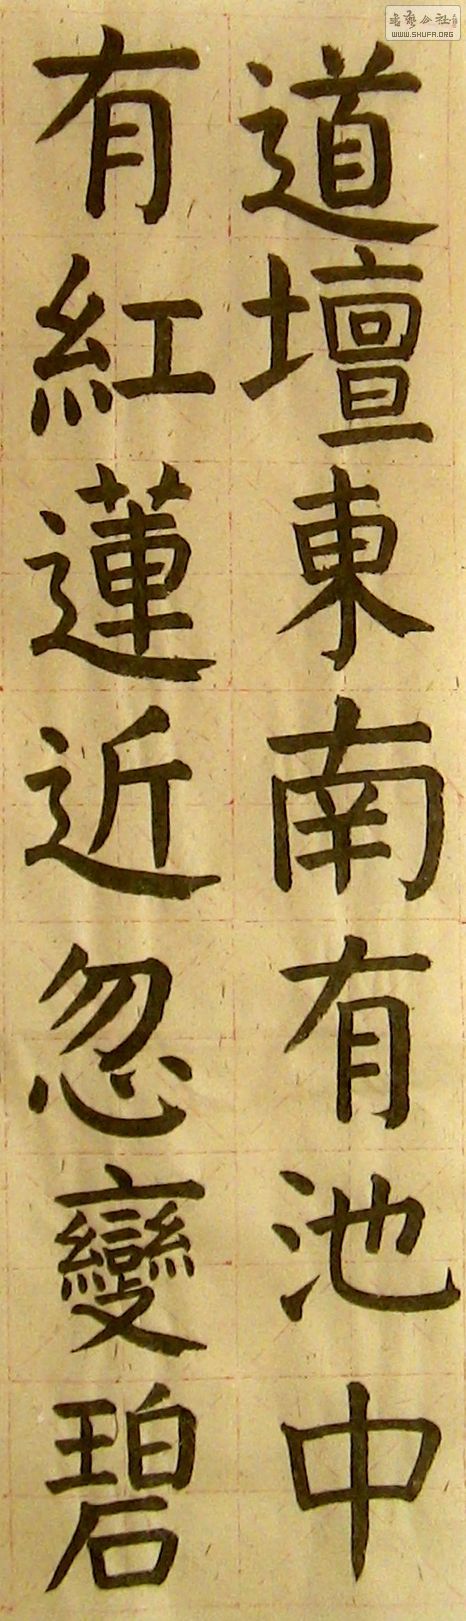 道壇東南有池中
有紅蓮近忽變碧
WWW.SHUFA.ORG